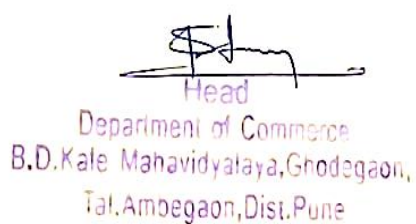 Head
Department of Commerce
B.D.Kale Mahavidyalaya,Ghodegaon,
Tal.Ambegaon,Dist.Pune